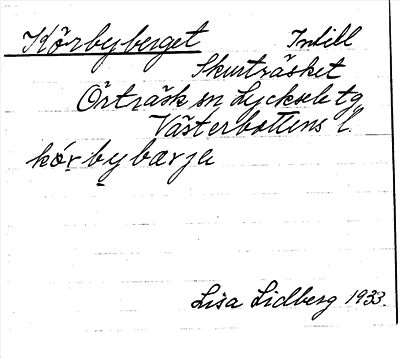 Körbyberget Intill
Skurträsket
Örträsk sn Lycksele tg
Västerbottens l.
kọ́r̤by̤bærja
Lisa Lidberg 1933.